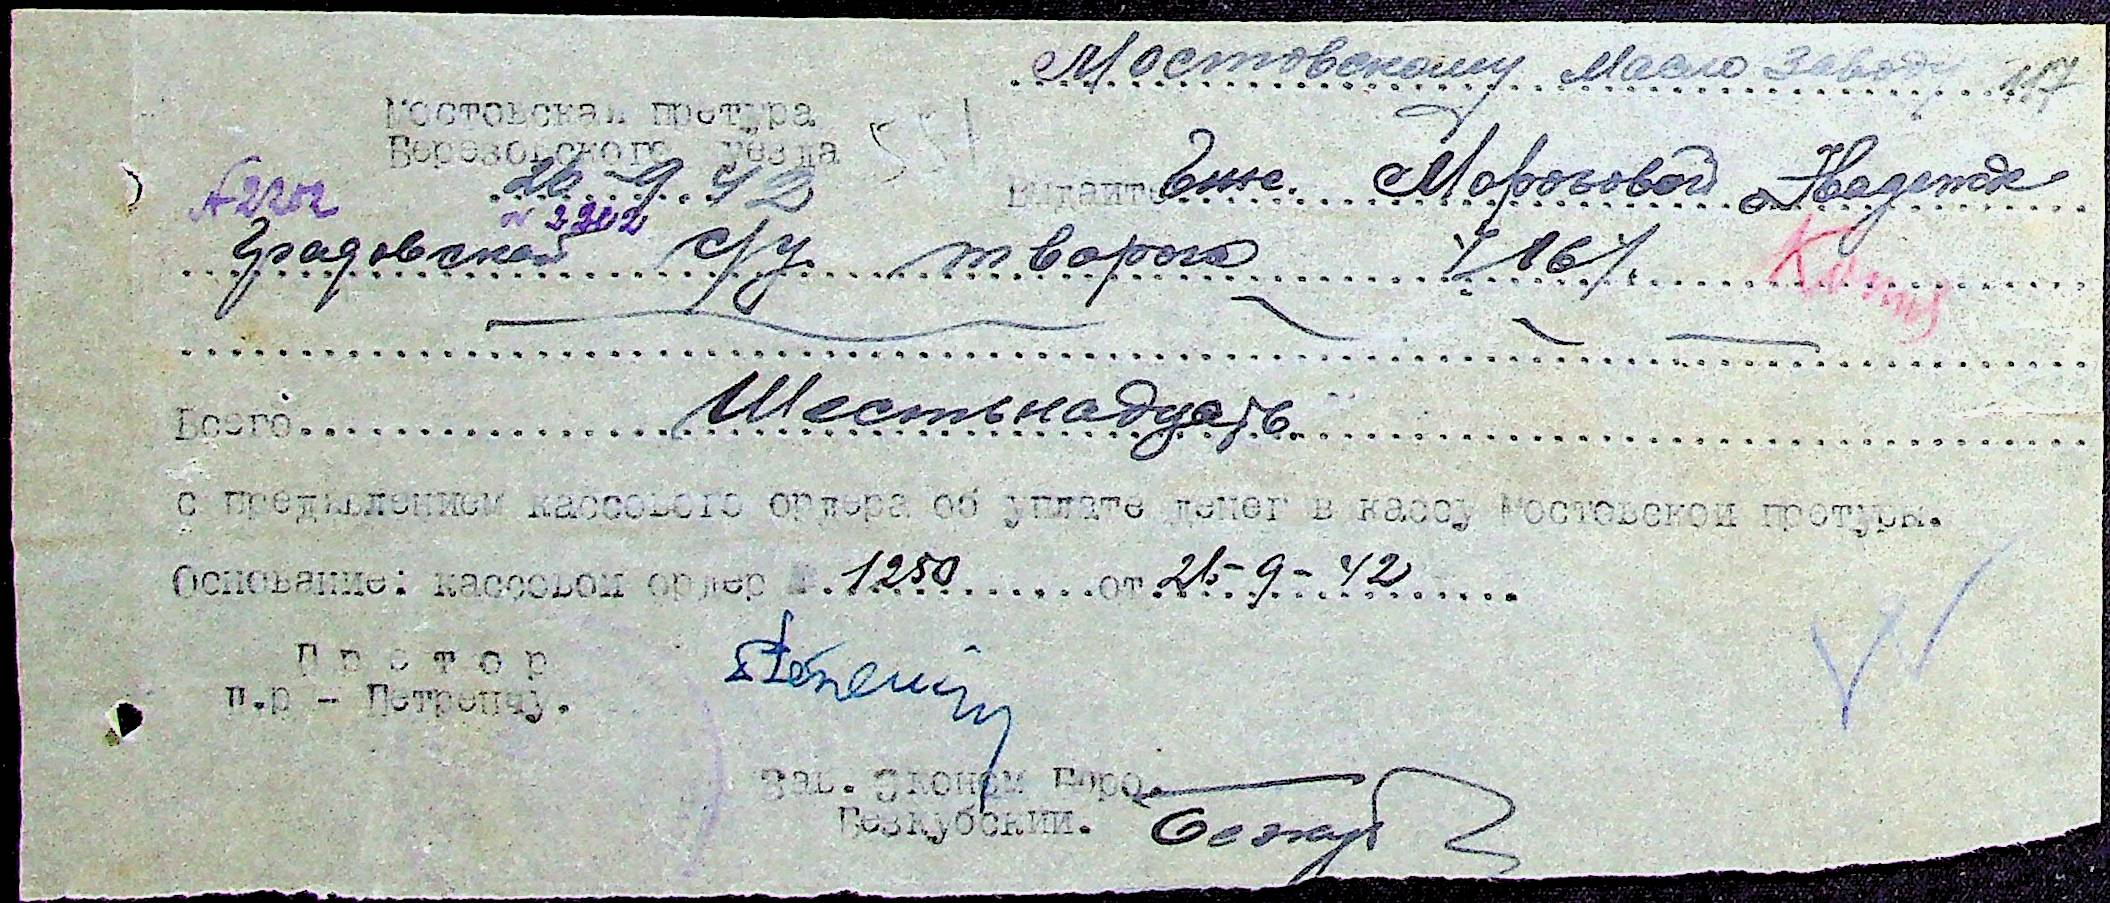 Мостовскому Масло Заводу 117
Мостовская претура
Березовского уезда 551
26-9-42 Выдайте Инж. Морозовой Надежде
№ 2202 № 2202
Градовской с/у творога /16/.
Всего Шестьнадцать
с предявлением кассового ордера об уплате денег в кассу Мостовской претуры.
Основание: кассовой ордер №. 1250 от 26-9-42
Претор
п.р - Петренчу.
Зав. Эконом Бюро
Безкубский.